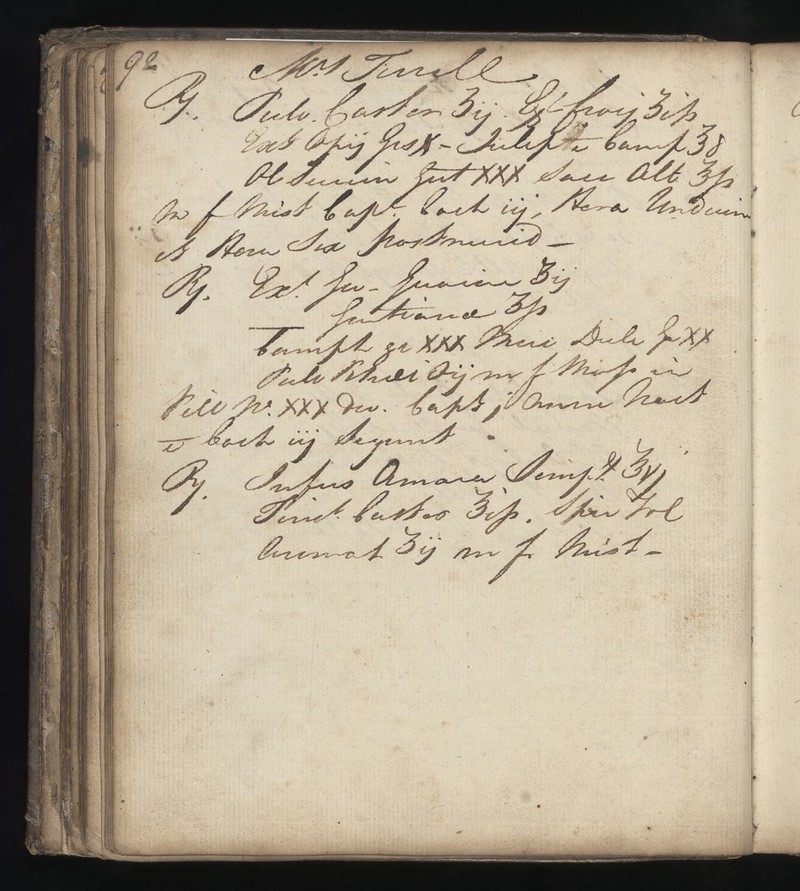 92
Mrs Tirrell
Rx. Pulv. Castor ʒij. Ext
Ext Opij Grs X - Julep è Camp ℥8
Ol Succin gut XXX Sacc Alb ʒß
m f Mist Capt. Coch iij, Hora Undecim
& Hora Sex postmerid -
Rx. Ext Gu - Guaiac ʒij
Gentianæ ʒß
Camph gr XXX Merc Dulc Gr XX
Pulv Rhæi ℈ij m f Mass in
Pill No. XXX Dev. Capt j omni Noct
è Coch iij Sequent
Rx. Infus Amara Simp
Tinct. Castor ʒiß. Spir Vol
Aromat ʒij m f Mist -